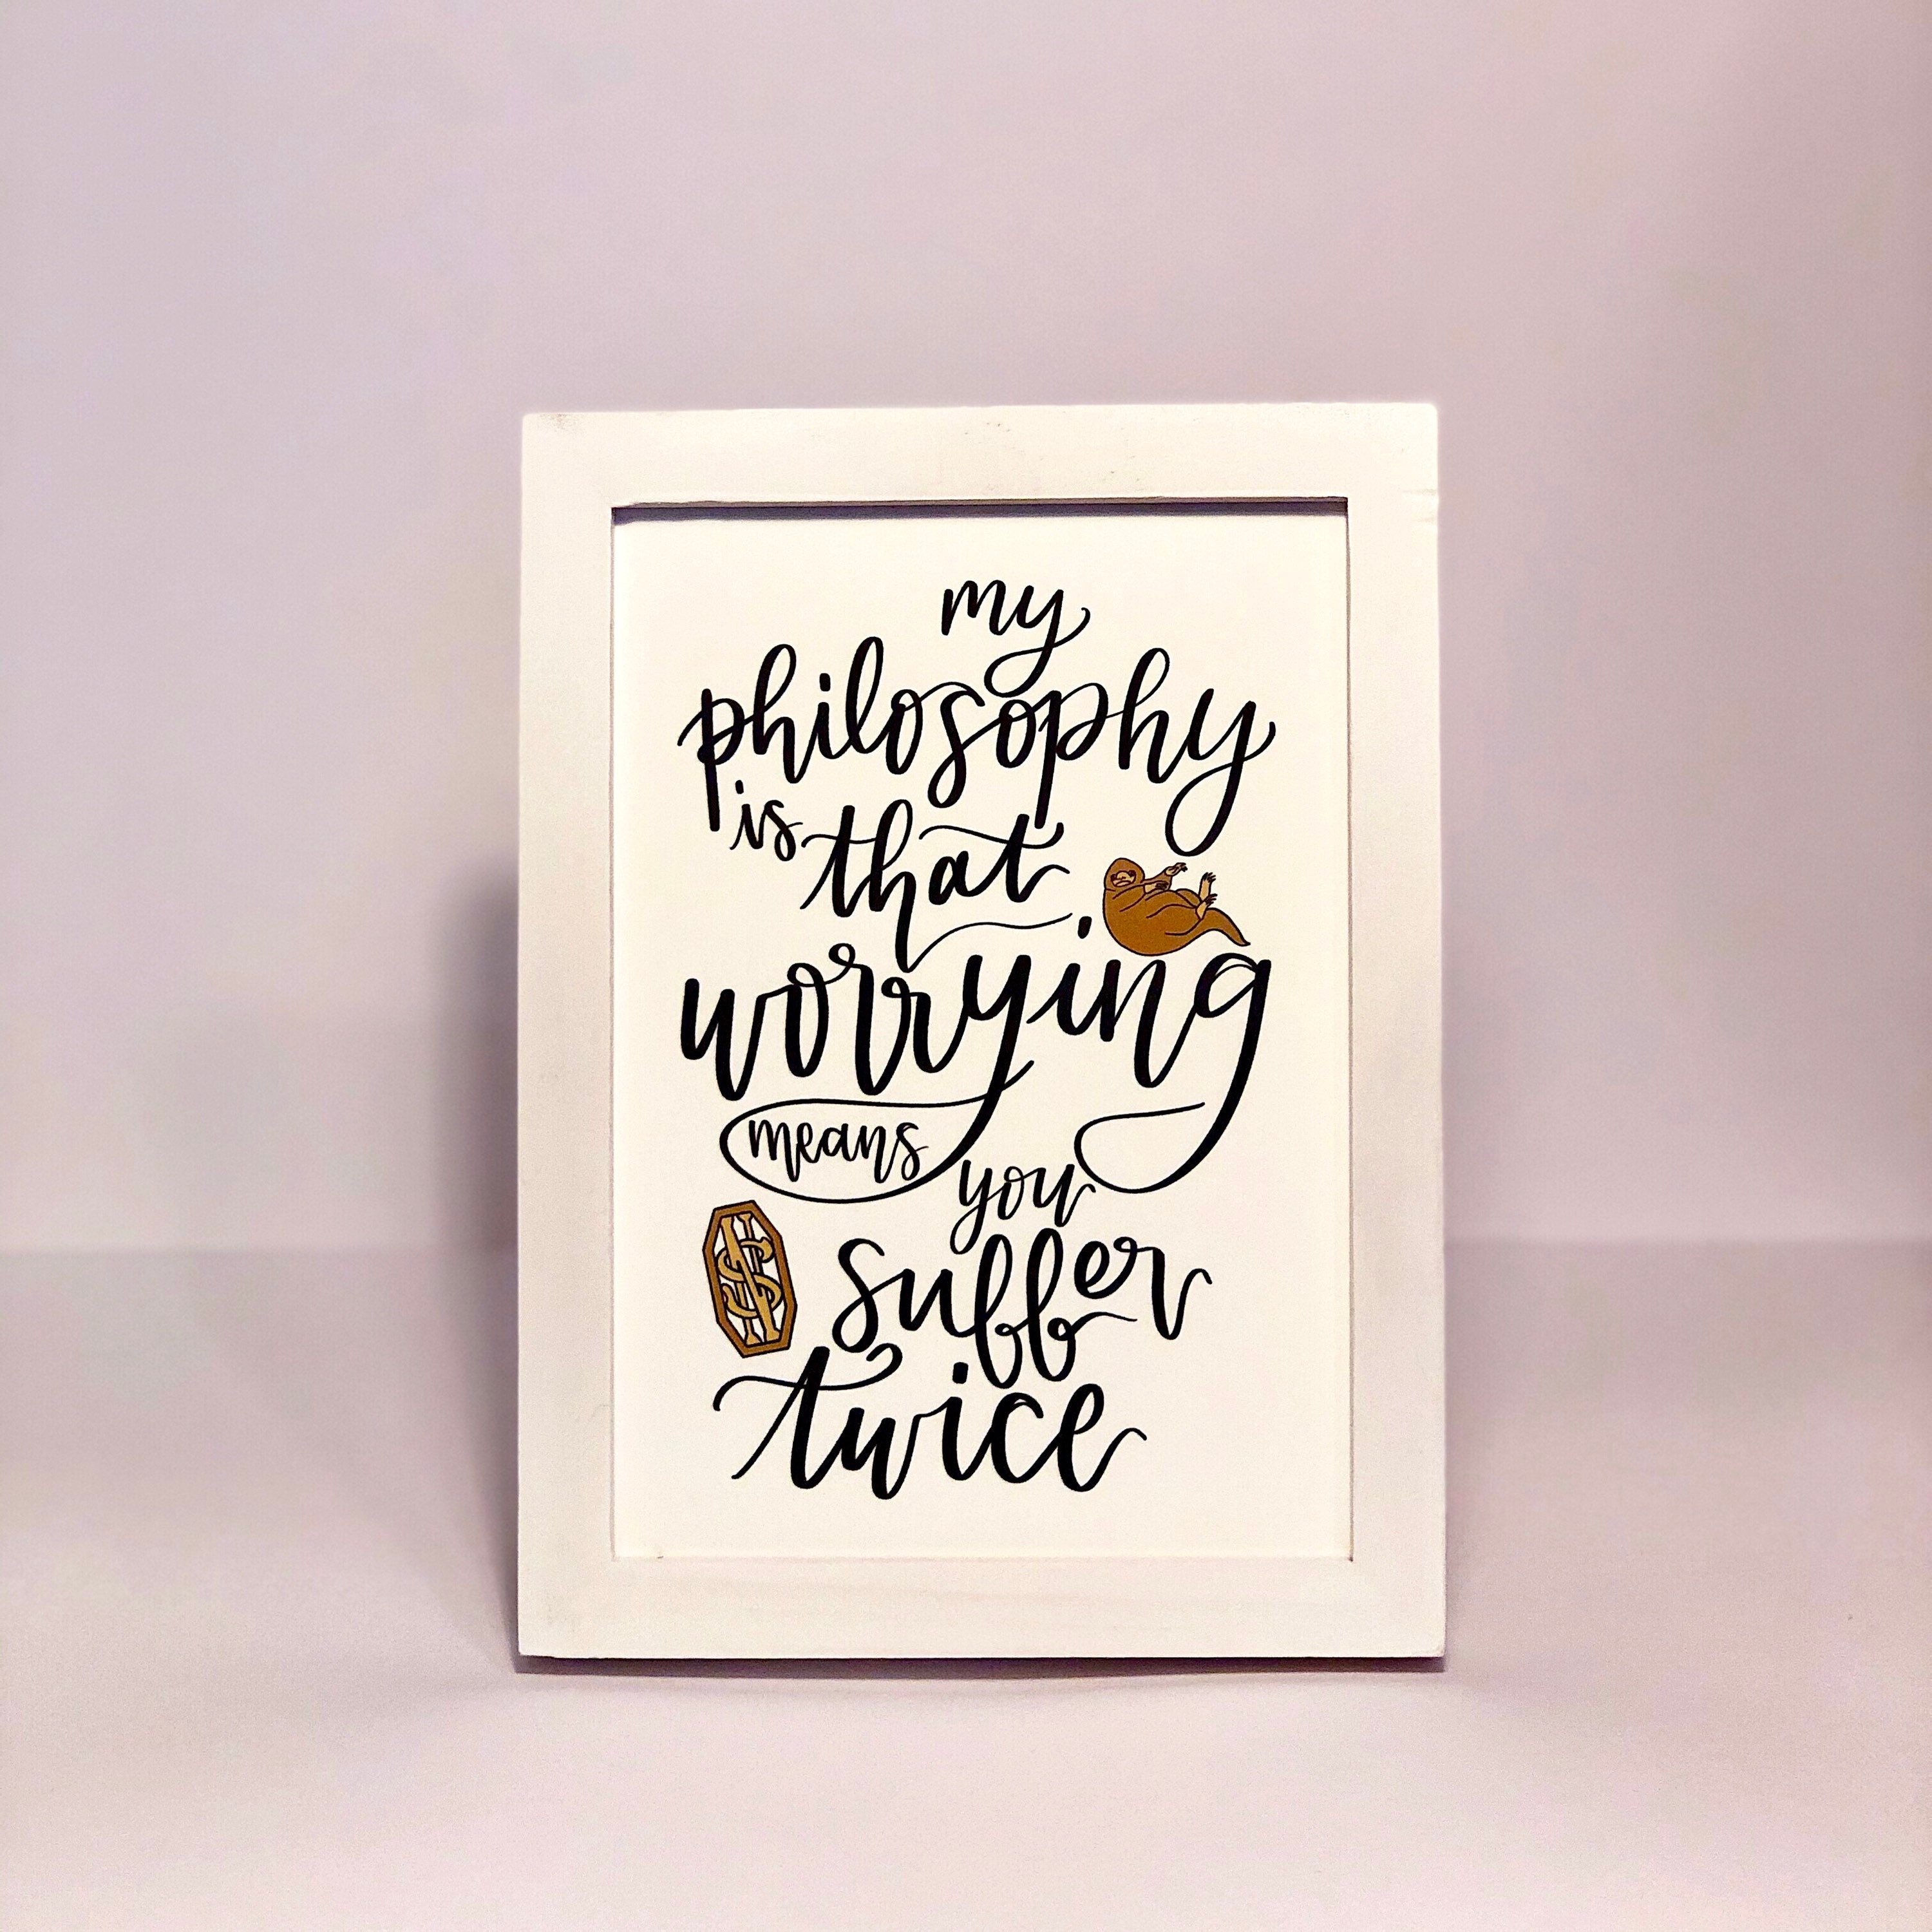 my
philosophy
is that
worrying
means you
suffer
twice
NS